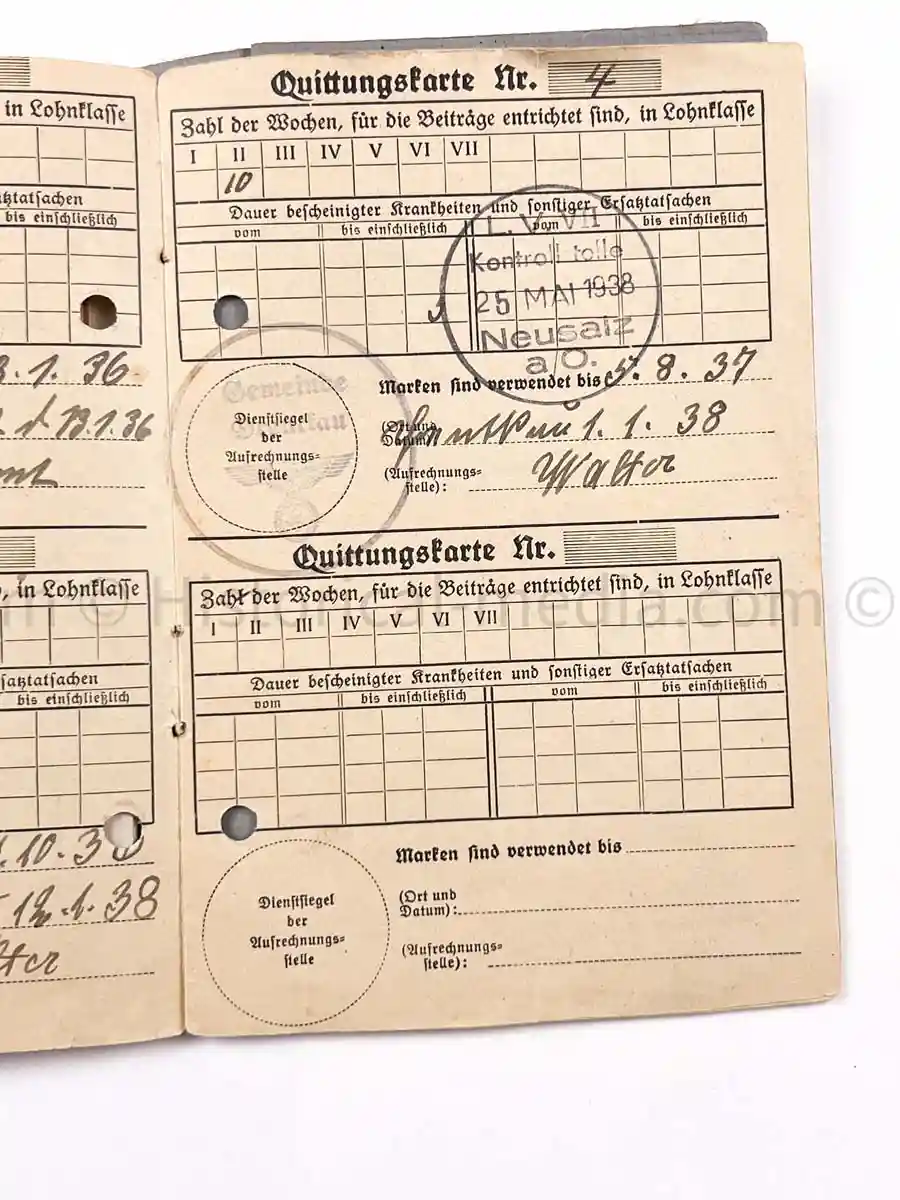 in Lohnklasse
satztatsachen
bis einschließlich
3. 1. 36
13.1.36
in Lohnklasse
satztatsachen
bis einschließlich
12.1.38
Quittungskarte Nr. 4
Zahl der Wochen, für die Beiträge entrichtet sind, in Lohnklasse
I II III IV V VI VII
10
Dauer bescheinigter Krankheiten und sonstiger Ersatztatsachen
vom bis einschließlich vom bis einschließlich
L. V. VII
Kontrollstelle
25 MAI 1938
Neusalz
a/O.
Marken sind verwendet bis 5. 8. 37
Gemeinde
Dienstsiegel
der
Aufrechnungs-
stelle
(Ort und
Datum): 1. 1. 38
(Aufrechnungs-
stelle): Walter
Quittungskarte Nr.
Zahl der Wochen, für die Beiträge entrichtet sind, in Lohnklasse
I II III IV V VI VII
Dauer bescheinigter Krankheiten und sonstiger Ersatztatsachen
vom bis einschließlich vom bis einschließlich
Marken sind verwendet bis
Dienstsiegel
der
Aufrechnungs-
stelle
(Ort und
Datum):
(Aufrechnungs-
stelle):
© Historical-media.com ©